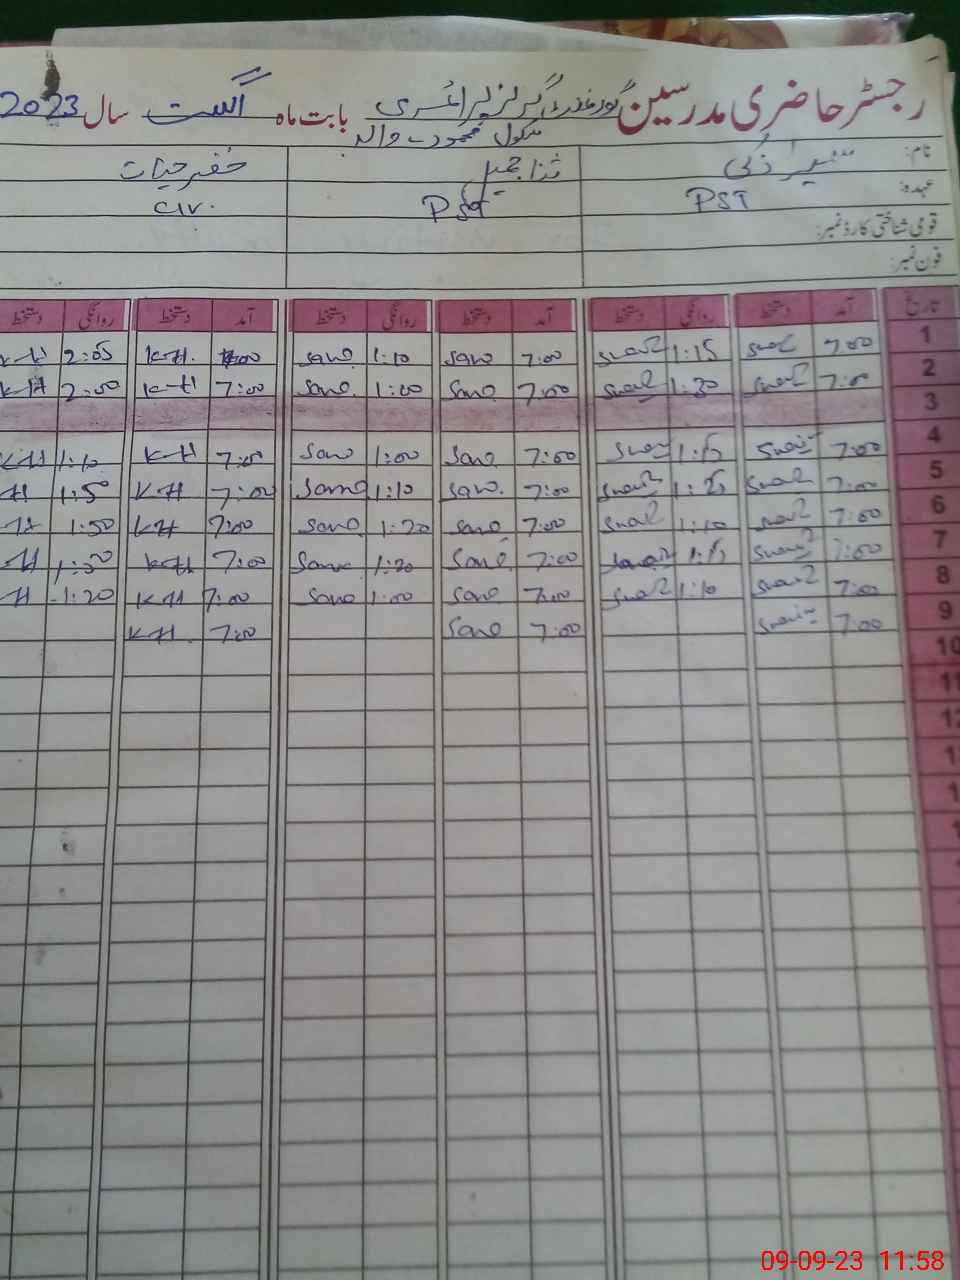 رجسٹر حاضری مدرسین گورنمنٹ گرلز پرائمری بابت ماہ اگست سال 2023
سکول محمود والہ
نام: ثناء جمیل خضر حیات
عہدہ: PST PST C/V.
قومی شناختی کارڈ نمبر:
فون نمبر:
تاریخ آمد دستخط روانگی دستخط آمد دستخط روانگی دستخط آمد دستخط روانگی دستخط
1 7:00 1:15 7:00 Sano 1:10 Sano 7:00 K-H. 2:05 K-H
2 7:00 1:30 7:00 Sano 1:00 Sano 7:00 K-H 2:00 K-H
3
4 7:00 1:15 7:00 Sano 1:00 Sano 7:00 K-H 1:10 K-H
5 7:00 7:00 Sano 1:10 Sano 7:00 K-H 1:50 H
6 7:00 1:10 7:00 Sano 1:20 Sano 7:00 K-H 1:50 H
7 7:00 1:15 7:00 Sano 1:20 Sano 7:00 K-H H
8 7:00 1:10 7:00 Sano 1:00 Sano 7:00 K-H 1:20 H
9 7:00 7:00 Sano 7:00 K-H
10
11
12
09-09-23 11:58